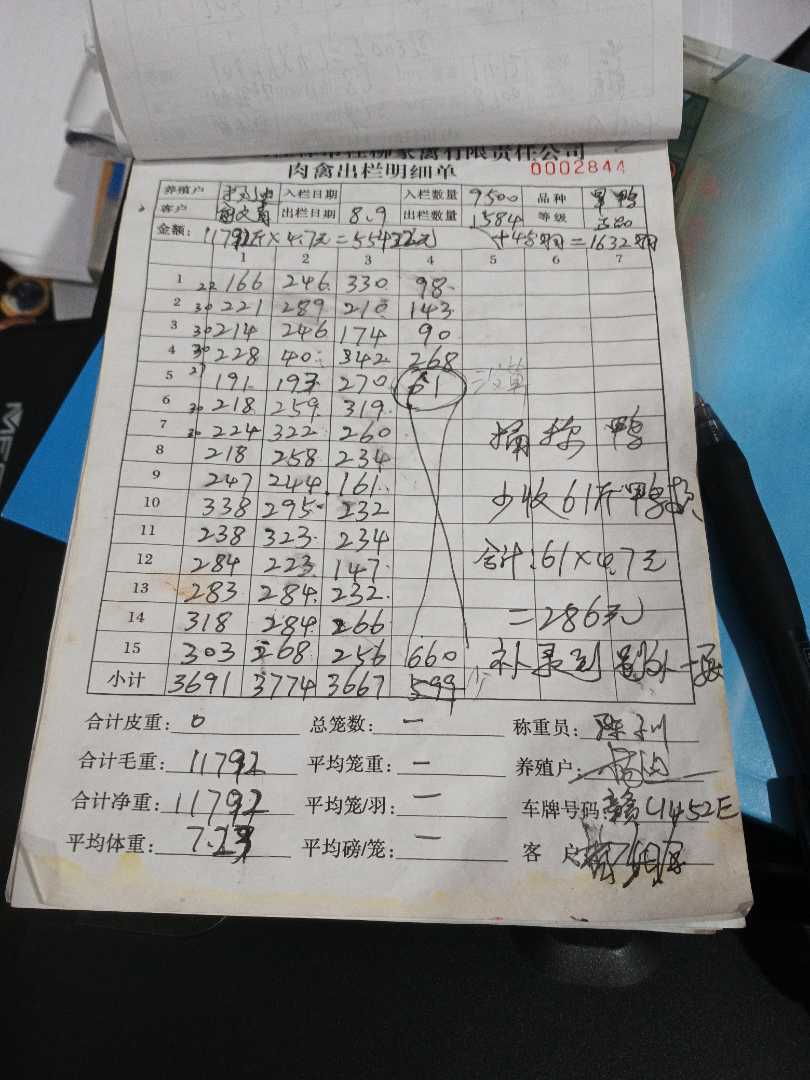 家禽有限责任公司
肉禽出栏明细单 0002844
养殖户 入栏日期 入栏数量 9500 品种
客户 出栏日期 8.9 出栏数量 1584 等级
金额: 11792斤×4.7元=55422元 +48羽=1632羽
1 2 3 4 5 6 7
1 22 166 246 330 98
2 30 221 289 210 143
3 30 214 246 174 90
4 30 228 40 342 268
5 27 191 193 270 61
6 30 218 259 319
7 30 224 322 260
8 218 258 234
9 247 244 161
10 338 295 232
11 238 323 234
12 284 223 147
13 283 284 232
14 318 284 266
15 303 268 256 660
小计 3691 3774 3667 599
少收61斤鸭款
合计:61×4.7元
=286元
合计皮重: 0 总笼数: 一 称重员:
合计毛重: 11792 平均笼重: 一 养殖户:
合计净重: 11792 平均笼/羽: 一 车牌号码: 赣C1452E
平均体重: 7.23 平均磅/笼: 一 客户